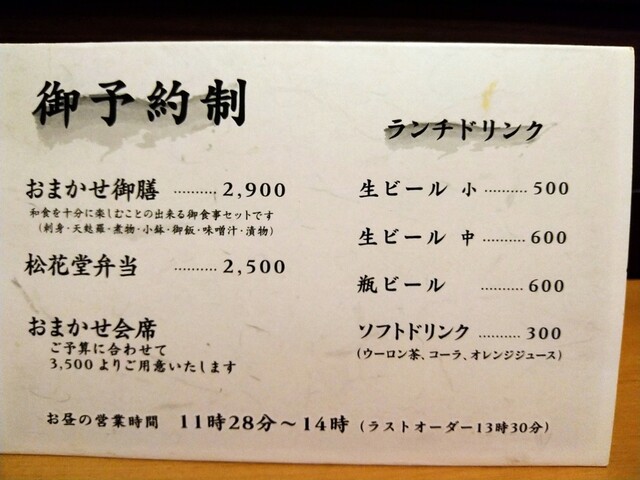 御予約制
おまかせ御膳 ……… 2,900
和食を十分に楽しむことの出来る御食事セットです
(刺身・天麩羅・煮物・小鉢・御飯・味噌汁・漬物)
松花堂弁当 ……… 2,500
おまかせ会席
ご予算に合わせて
3,500よりご用意いたします
ランチドリンク
生ビール 小 ……… 500
生ビール 中 ……… 600
瓶ビール ……… 600
ソフトドリンク ……… 300
(ウーロン茶、コーラ、オレンジジュース)
お昼の営業時間 11時28分～14時(ラストオーダー13時30分)